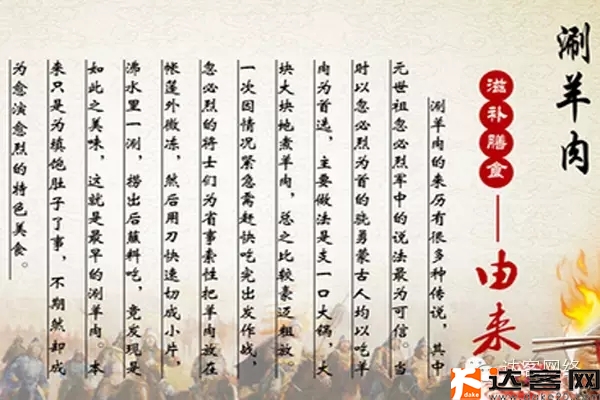 涮羊肉
滋补膳食
——由来
涮羊肉的来历有很多种传说，其中
元世祖忽必烈军中的说法最为可信。当
时以忽必烈为首的骁勇蒙古人均以吃羊
肉为首选，主要做法是支一口大锅，大
块大块地煮羊肉，总之比较豪迈粗放。
一次因情况紧急需赶快吃完出发作战，
忽必烈的将士们为省事索性把羊肉放在
帐篷外微冻，然后用刀快速切成小片，
沸水里一涮，捞出后蘸料吃，竟发现是
如此之美味，这就是最早的涮羊肉。本
来只是为填饱肚子了事，不期然却成
为愈演愈烈的特色美食。
达客网络
dake
达客网